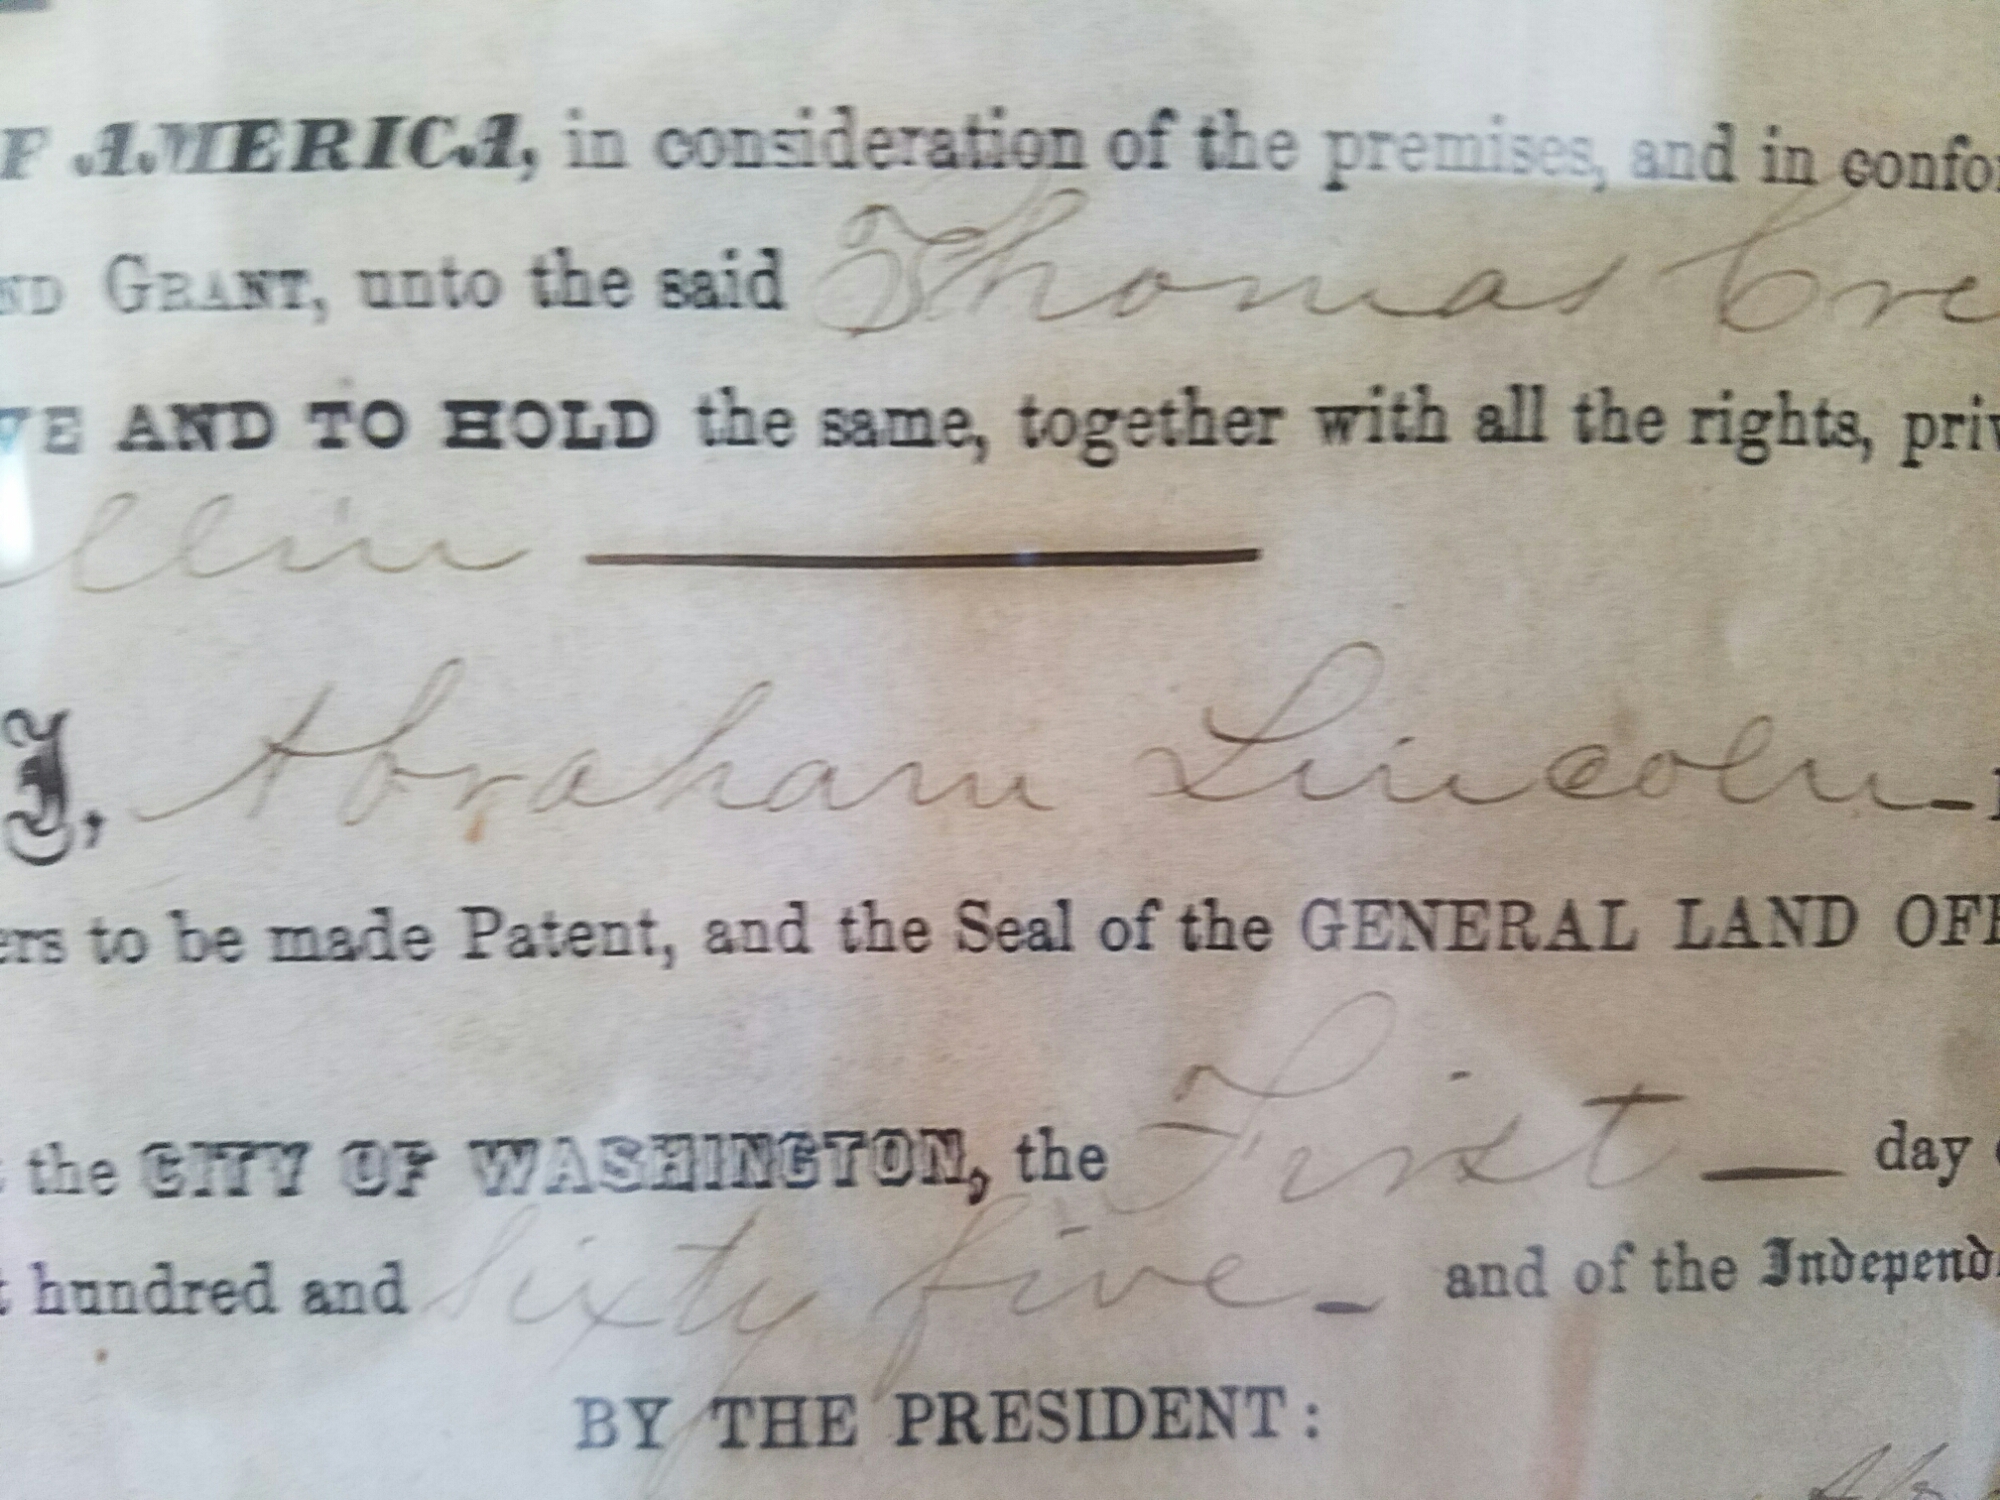 F AMERICA, in consideration of the premises, and in confo
ND GRANT, unto the said Thomas Cre
VE AND TO HOLD the same, together with all the rights, priv
llin
I, Abraham Lincoln
ers to be made Patent, and the Seal of the GENERAL LAND OFF
the CITY OF WASHINGTON, the First day
t hundred and Sixty five and of the Independ
BY THE PRESIDENT:
Ab